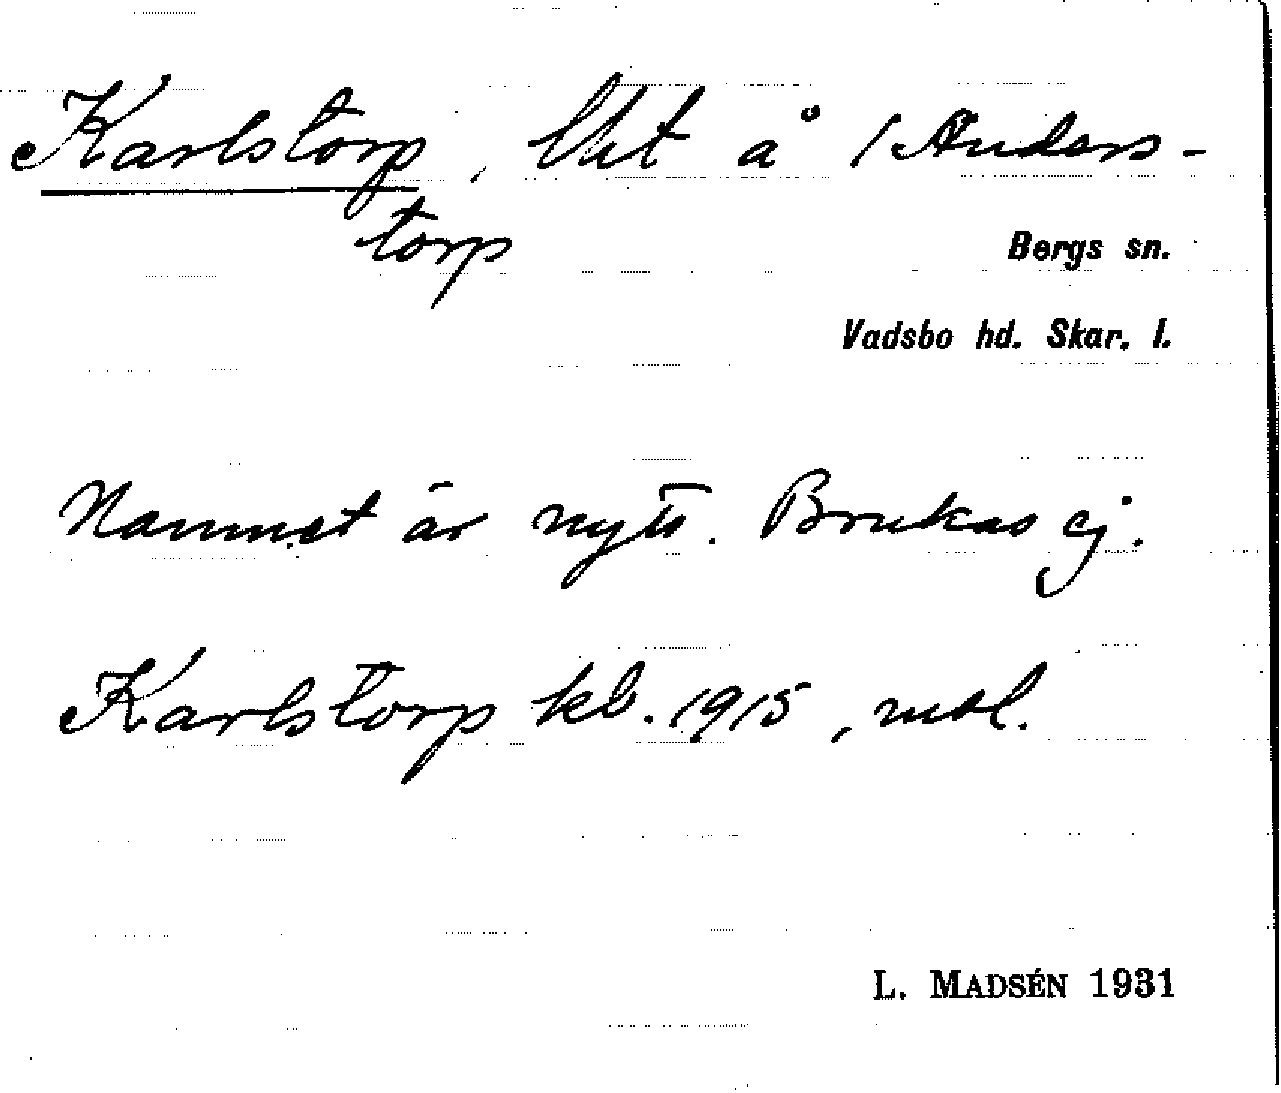 Karlstorp, lht å 1 Anders-
torp
Bergs sn.
Vadsbo hd. Skar. l.
Namnet är nytt. Brukas ej.
Karlstorp kb. 1915, mtl.
L. MADSÉN 1931